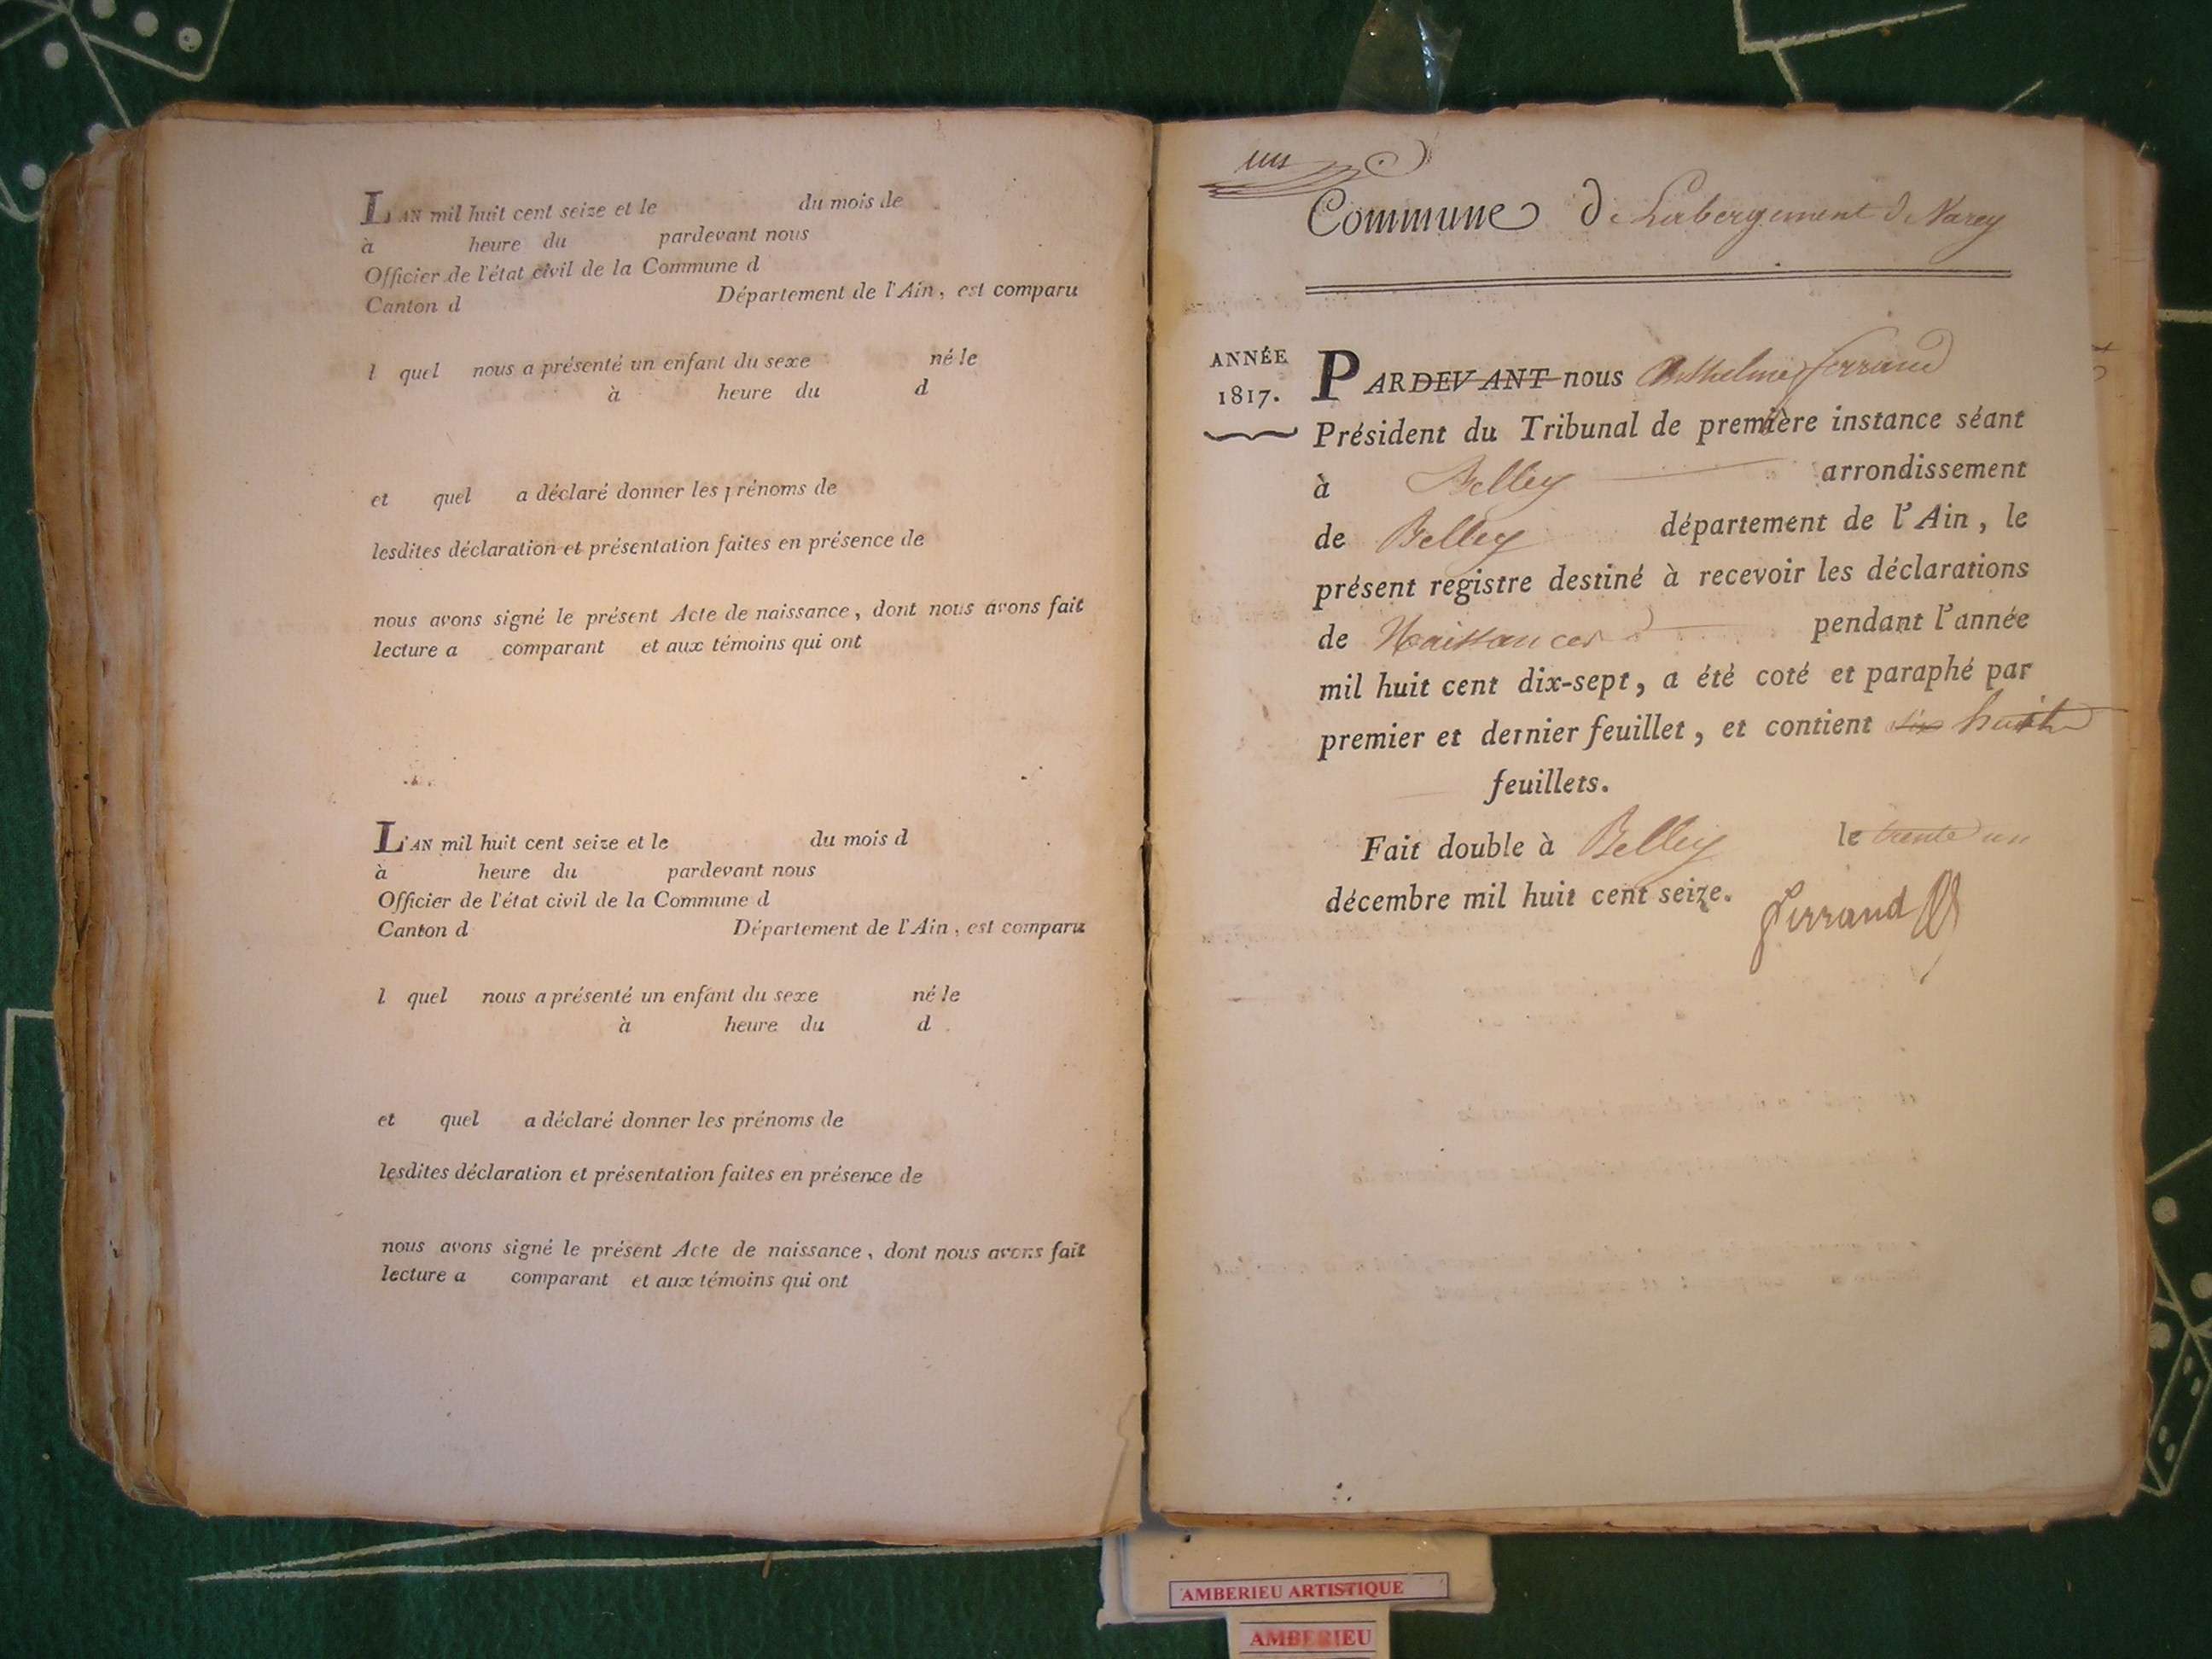 L'AN mil huit cent seize et le du mois de
à heure du pardevant nous
Officier de l'état civil de la Commune d
Canton d Département de l'Ain, est comparu
l quel nous a présenté un enfant du sexe né le
à heure du d
et quel a déclaré donner les prénoms de
lesdites déclaration et présentation faites en présence de
nous avons signé le présent Acte de naissance, dont nous avons fait
lecture a comparant et aux témoins qui ont
L'AN mil huit cent seize et le du mois d
à heure du pardevant nous
Officier de l'état civil de la Commune d
Canton d Département de l'Ain, est comparu
l quel nous a présenté un enfant du sexe né le
à heure du d
et quel a déclaré donner les prénoms de
lesdites déclaration et présentation faites en présence de
nous avons signé le présent Acte de naissance, dont nous avons fait
lecture a comparant et aux témoins qui ont
un
Commune De Labergement De Varey
ANNÉE
1817.
PARDEVANT nous Anthelme ferrand
Président du Tribunal de première instance séant
à Belley arrondissement
de Belley département de l'Ain, le
présent registre destiné à recevoir les déclarations
de Naissances pendant l'année
mil huit cent dix-sept, a été coté et paraphé par
premier et dernier feuillet, et contient dix huit
feuillets.
Fait double à Belley le trente un
décembre mil huit cent seize.
ferrand
AMBERIEU ARTISTIQUE
AMBERIEU